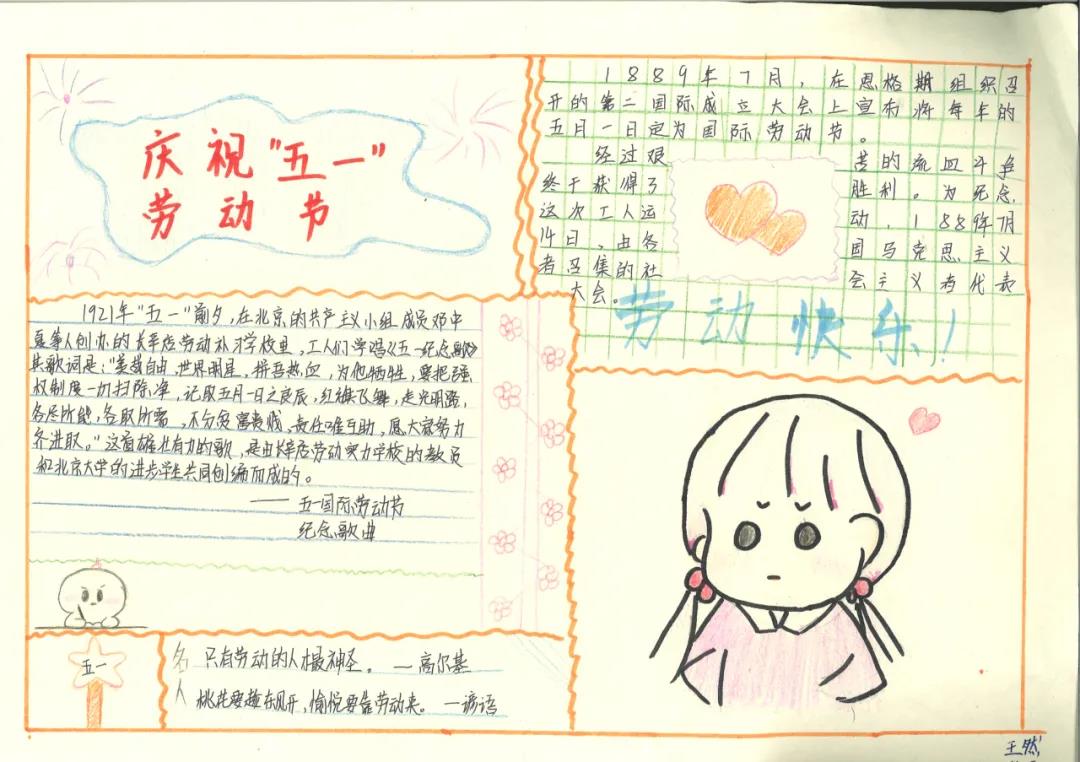 庆祝"五一"
劳动节
1889年7月，在恩格斯组织召
开的第二国际成立大会上宣布将每年的
五月一日定为国际劳动节。
经过艰苦的流血斗争
终于获得了胜利。为纪念
这次工人运动，1889年7月
14日，由各国马克思主义
者召集的社会主义者代表
大会。
劳动快乐！
1921年"五一"前夕，在北京的共产主义小组成员邓中
夏等人创办的长辛店劳动补习学校里，工人们学唱《五一纪念歌》
其歌词是："美哉自由，世界明星，拼吾热血，为他牺牲，要把强
权制度一切扫除净，记取五月一日之良辰，红旗飞舞，走光明路，
各尽所能，各取所需，不分贫富贵贱，责任唯互助，愿大家努力
齐进取。"这首雄壮有力的歌，是由长辛店劳动实力学校的教员
和北京大学的进步学生共同创编而成的。
——五一国际劳动节
纪念歌曲
五一
名人
只有劳动的人最神圣。—高尔基
桃花要趁东风开，愉悦要靠劳动来。—谚语
王然